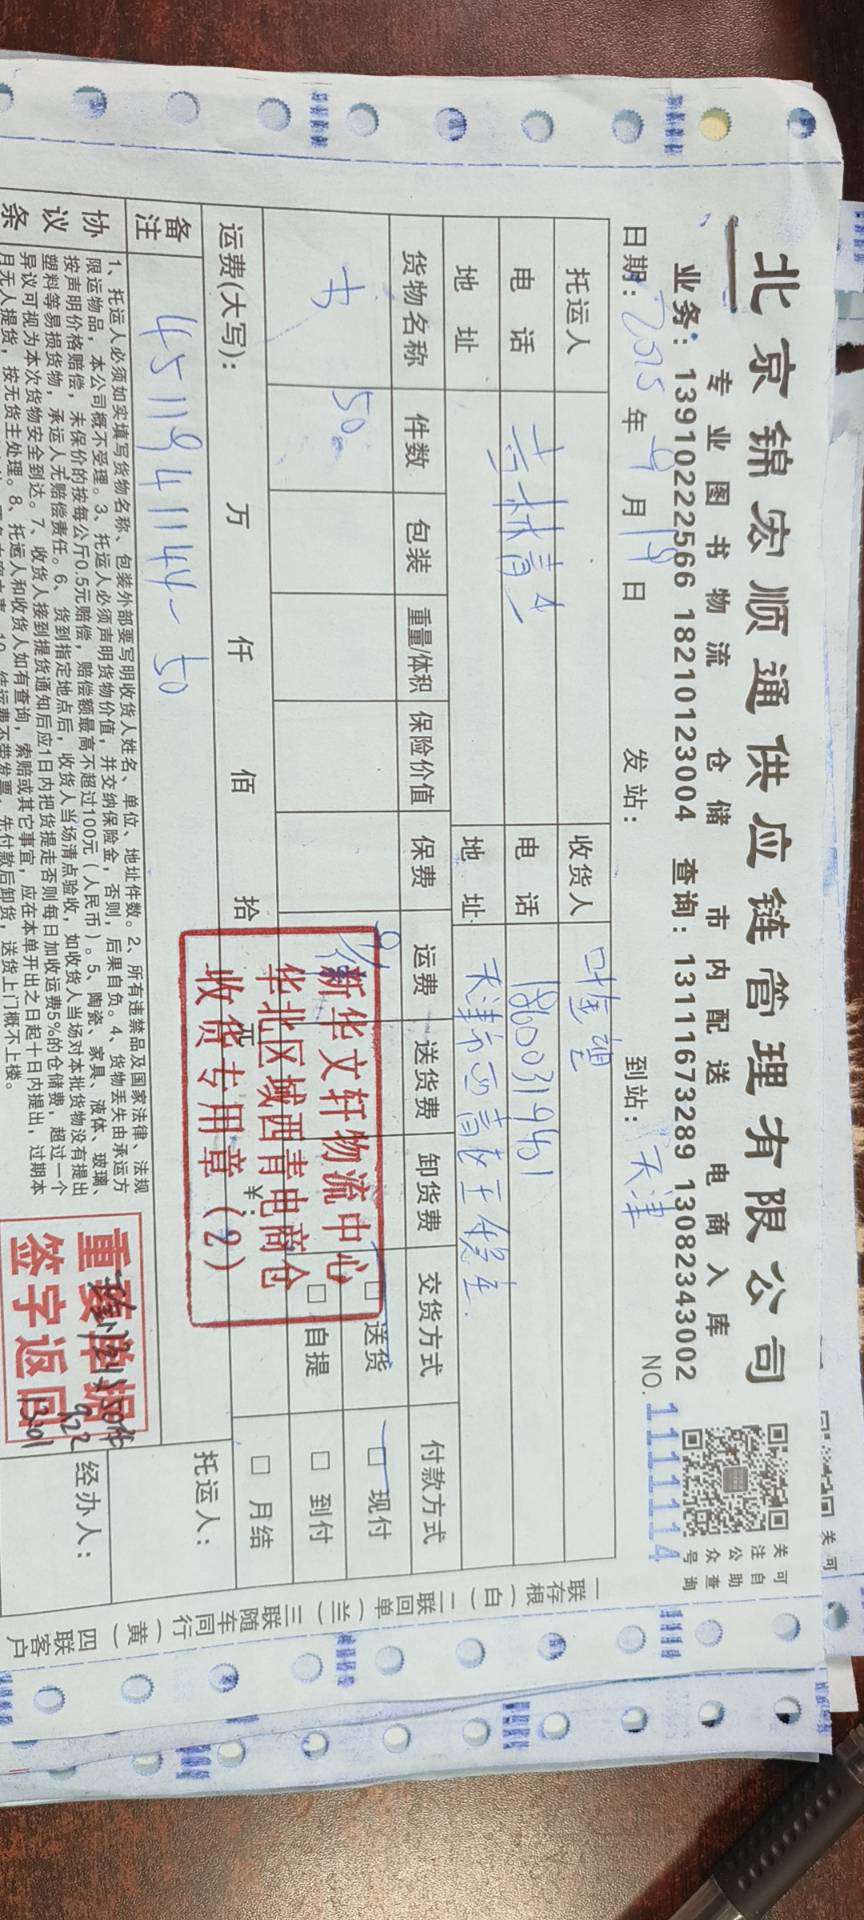 北京锦宏顺通供应链管理有限公司
专业图书物流 仓储 市内配送 电商入库
业务:13910222566 18210123004 查询:13111673289 13082343002
关注公众号
可自助查询
日期:2025年9月19日 发站: 到站:天津 NO.1111114
托运人 收货人 叶金理
电话 吉林青 电话 18600319451
地址 地址 天津市西青区王稳庄
货物名称 件数 包装 重量/体积 保险价值 保费 运费 送货费 卸货费 交货方式 付款方式
书 50 □送货 □现付
□自提 □到付
□月结
运费(大写): 万 仟 佰 拾 元 ¥:
新华文轩物流中心
华北区域西青电商仓
收货专用章(2)
备注 4511941144-50
托运人:
经办人:
协议条
1、托运人必须如实填写货物名称、包装外部要写明收货人姓名、单位、地址件数。2、所有违禁品及国家法律、法规
限运物品,本公司概不受理。3、托运人必须声明货物价值,并交纳保险金,否则,后果自负。4、货物丢失由承运方
按声明价格赔偿,未保价的按每公斤0.5元赔偿,赔偿额最高不超过100元(人民币)。5、陶瓷、家具、液体、玻璃、
塑料等易损货物,承运人无赔偿责任。6、货到指定地点后,收货人当场清点验收,如收货人当场对本批货物没有提出
异议可视为本次货物安全到达。7、收货人接到提货通知后应1日内把货提走否则每日加收运费5%的仓储费,超过一个
月无人提货,按无货主处理。8、托运人和收货人如有查询,索赔或其它事宜,应在本单开出之日起十日内提出,过期本
先付款后卸货,送货上门概不上楼。
重要单据
签字返回
9.22
13:01
一联存根(白)二联回单(兰)三联随车同行(黄)四联客户